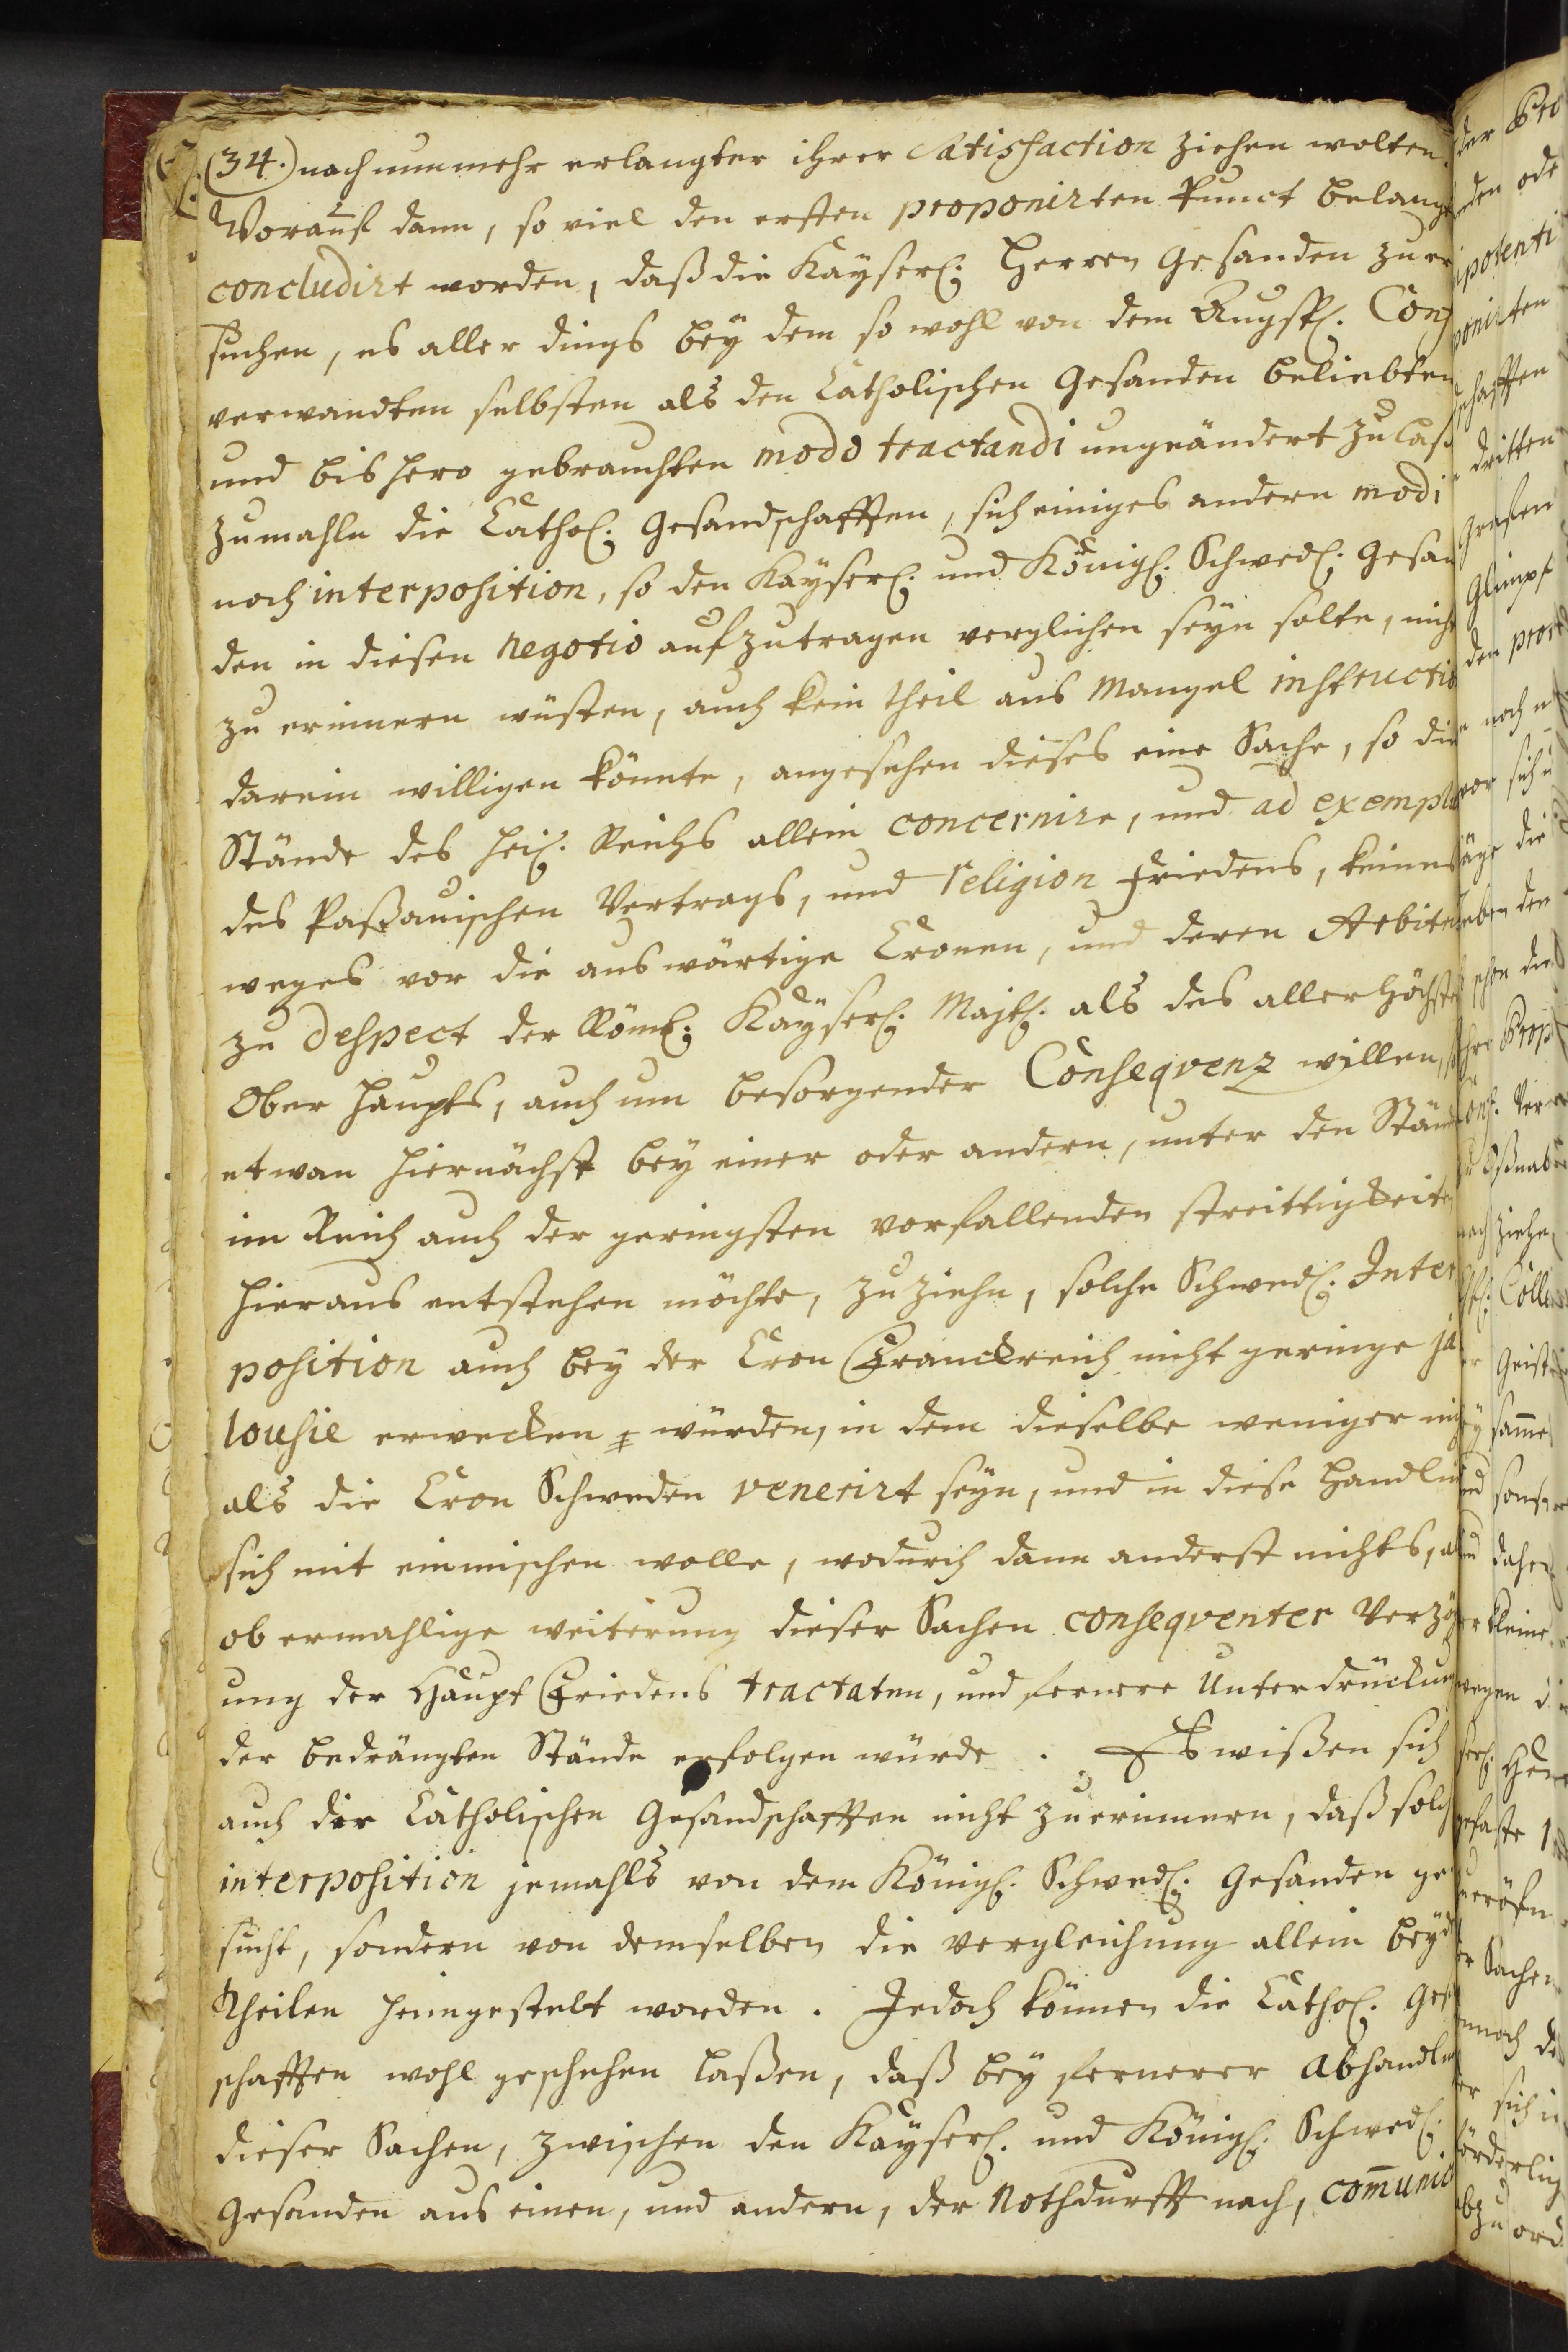 (34.) nach nunmehr erlangter ihrer Satisfaction ziehen wolten.
Worauf dann, so viel den ersten proponirten Punct belangt
concludirt worden, daß die Kayserl. Herren Gesanden zu er
suchen, es aller dings bey dem so wohl von dem Augsp. Conf
verwandten selbsten als den Catholischen Gesanden beliebten
und bishero gebrauchten modo tractandi ungeändert zu laß
zumahln die Cathol. Gesandschafften, sich einiges andern modi
noch interposition, so den Kayserl. und Königl. Schwed. Gesan
den in diesen negotio aufzutragen verglichen seyn solte, nicht
zu erinnern wüsten, auch kein theil aus Mangel instructio
darein willigen könnte, angesehen dieses eine Sache, so die
Stände des heil. Reichs allein concernire, und ad exempl
des Paßauischen Vertrags, und religion Friedens, keines
weges vor die auswärtige Cronen, und deren Arbitri
zu despect der Röml. Kayserl. Majtl. als des allerhöchste
Ober Haupts, auch um besorgender Conseqvenz willen, so
etwan hiernächst bey einer oder andern, unter den Stän
im Reich auch der geringsten vorfallenden streittigkeiten
hieraus entstehen möchte, zu ziehn, solche Schwed. Inter
position auch bey der Cron Franckreich nicht geringe ja
lousie erwecken würden, in dem dieselbe weniger nicht
als die Cron Schweden venerirt seyn, und in diese Handlun
sich mit einmischen wolle, wodurch dann anderst nichts, als
ob ermahlige weiterung dieser Sachen conseqventer Verzög
ung der Haupt Friedens tractaten, und fernere Unterdrückung
der bedrängten Stände erfolgen würde. Es wißen sich
auch die Catholischen Gesandschafften nicht zuerinnern, daß solch
interposition jemahls von dem Königl. Schwed. Gesanden ge
sucht, sondern von demselben die Vergleichung allein beyd
Theilen heimgestelt worden. Jedoch können die Cathol. Ges
schafften wohl geschehen laßen, daß bey fernerer Abhandlu
dieser Sachen, zwischen den Kayserl. und Königl. Schwed.
Gesanden aus einen, und andern, der Nothdurfft nach, com̄unic